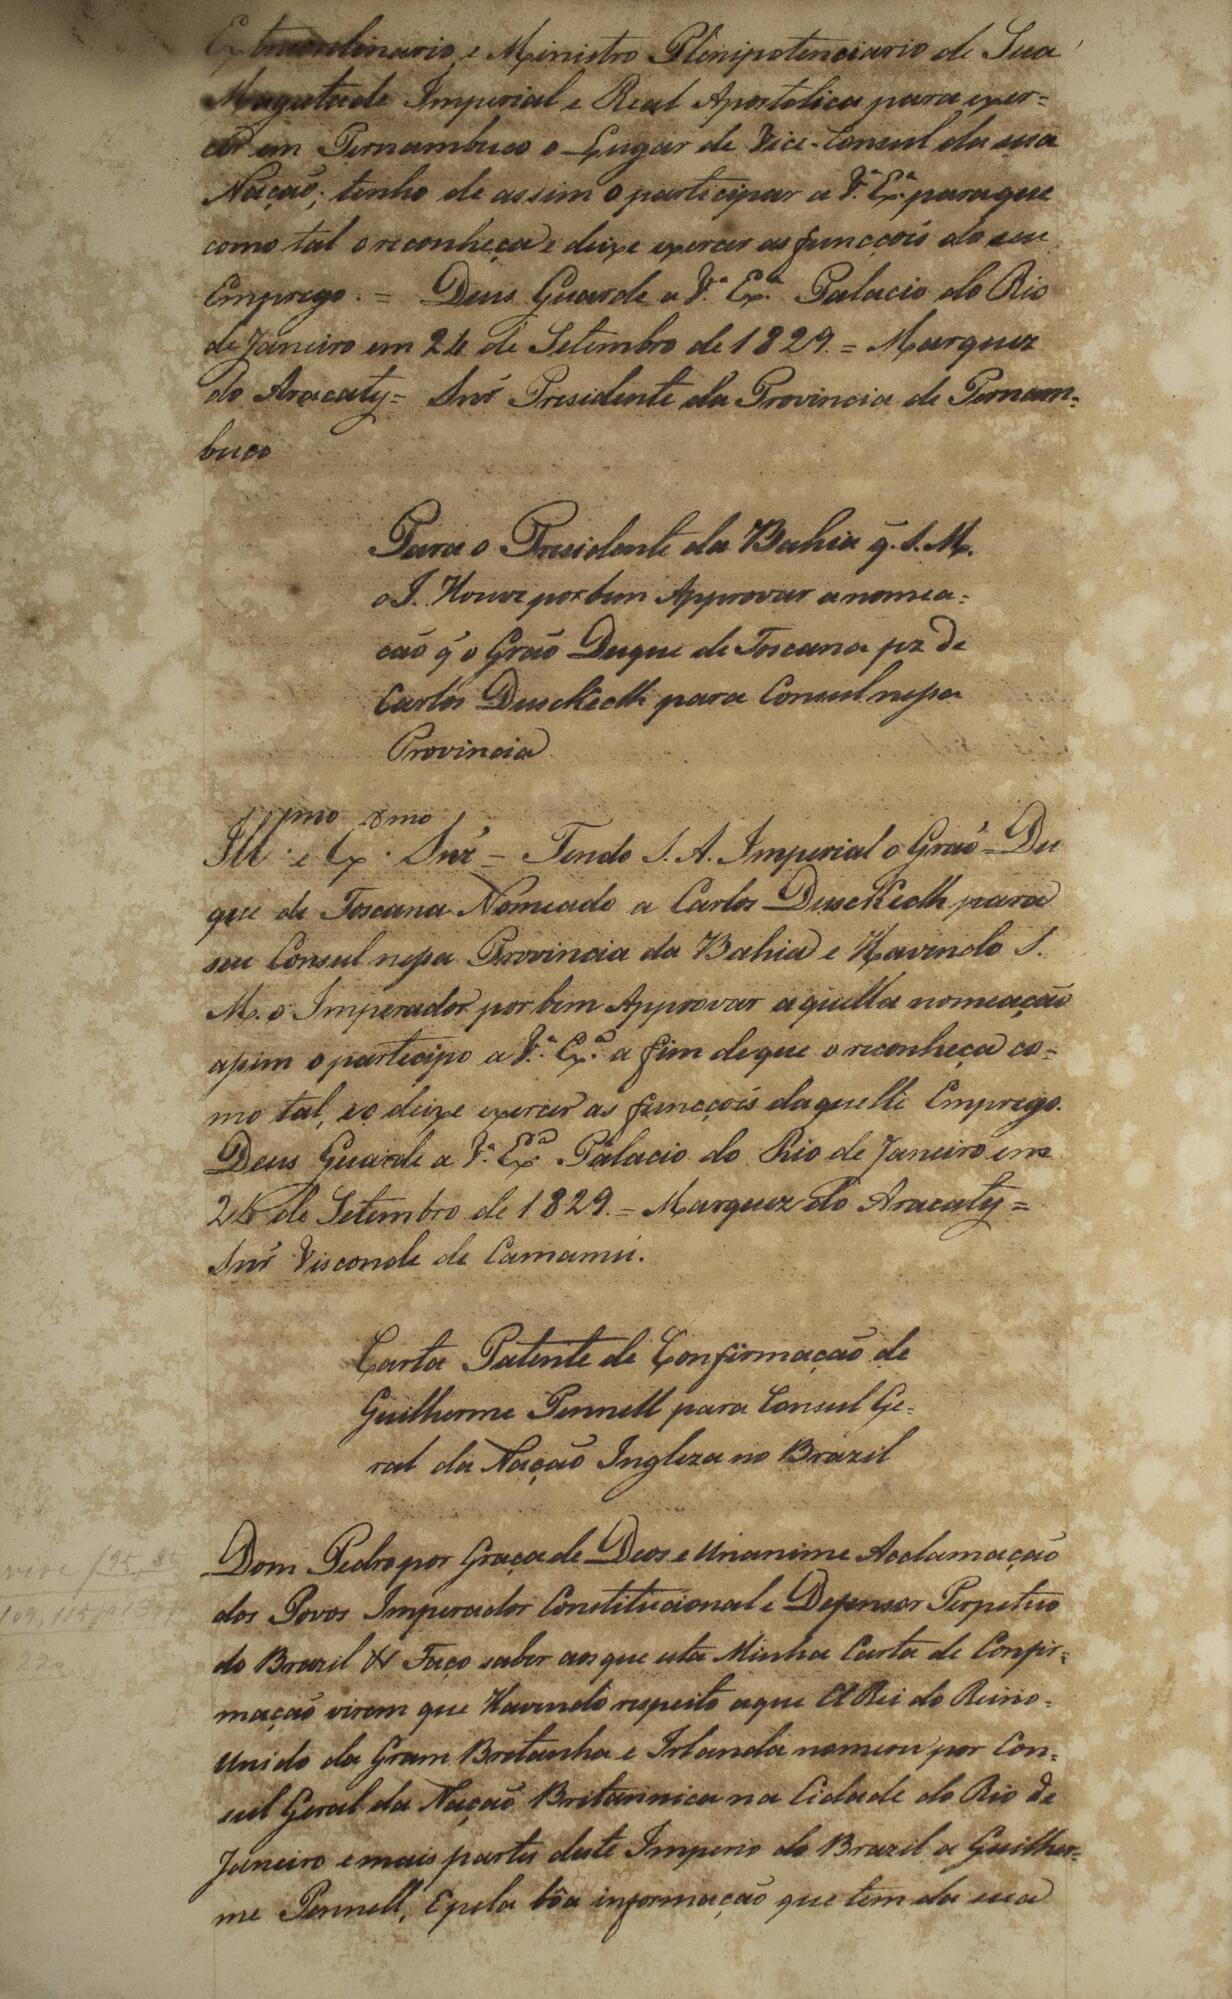 Extraordinario, e Ministro Plenipotenciario de Sua
Magestade Imperial e Real Apostolica para exer=
cer em Pernambuco o Lugar de Vice-Consul da sua
Nação; tenho de assim o participar a V.ª Ex.ª paraque
como tal o reconheça e deixe exercer as funcçoís do seu
Emprego. = Deus Guarde a V.ª Ex.ª Palacio do Rio
de Janeiro em 24 de Setembro de 1829. = Marquez
do Aracaty = Snr̃ Presidente da Provincia de Pernam=
buco
Para o Presidente da Bahia q̃. S. M.
o I. Houve por bem Approvar a nomea=
ção q̃ o Grão Duque de Toscana fez de
Carlos Dusckecth para Consul nessa
Provincia
Ill.mo e Ex.mo Snr̃ = Tendo S. A. Imperial o Grão Du
que de Toscana Nomeado a Carlos Dusckecth para
seu Consul nessa Provincia da Bahia e Havendo S.
M. o Imperador por bem Approvar aquella nomeação
assim o participo a V.ª Ex.ª a fim deque o reconheça co=
mo tal, e o deixe exercer as funcçoís daquelle Emprego.
Deus Guarde a V.ª Ex.ª Palacio do Rio de Janeiro em
24 de Setembro de 1829. = Marquez do Aracaty =
Snr̃ Visconde de Camamú.
Carta Patente de Confirmação de
Guilherme Pennell para Consul Ge=
ral da Nação Ingleza no Brazil
Dom Pedro por Graça de Deos e Unanime Acclamação
dos Povos Imperador Constitucional e Defensor Perpetuo
do Brazil & Faço saber aos que esta Minha Carta de Confir=
mação virem que Havendo respeito aque El Rei do Reino-
Unido da Gram Bretanha e Irlanda nomeou por Con=
sul Geral da Nação Britannica na Cidade do Rio de
Janeiro e mais partes deste Imperio do Brazil a Guilher=
me Pennell, E pela bôa informação que tem da sua